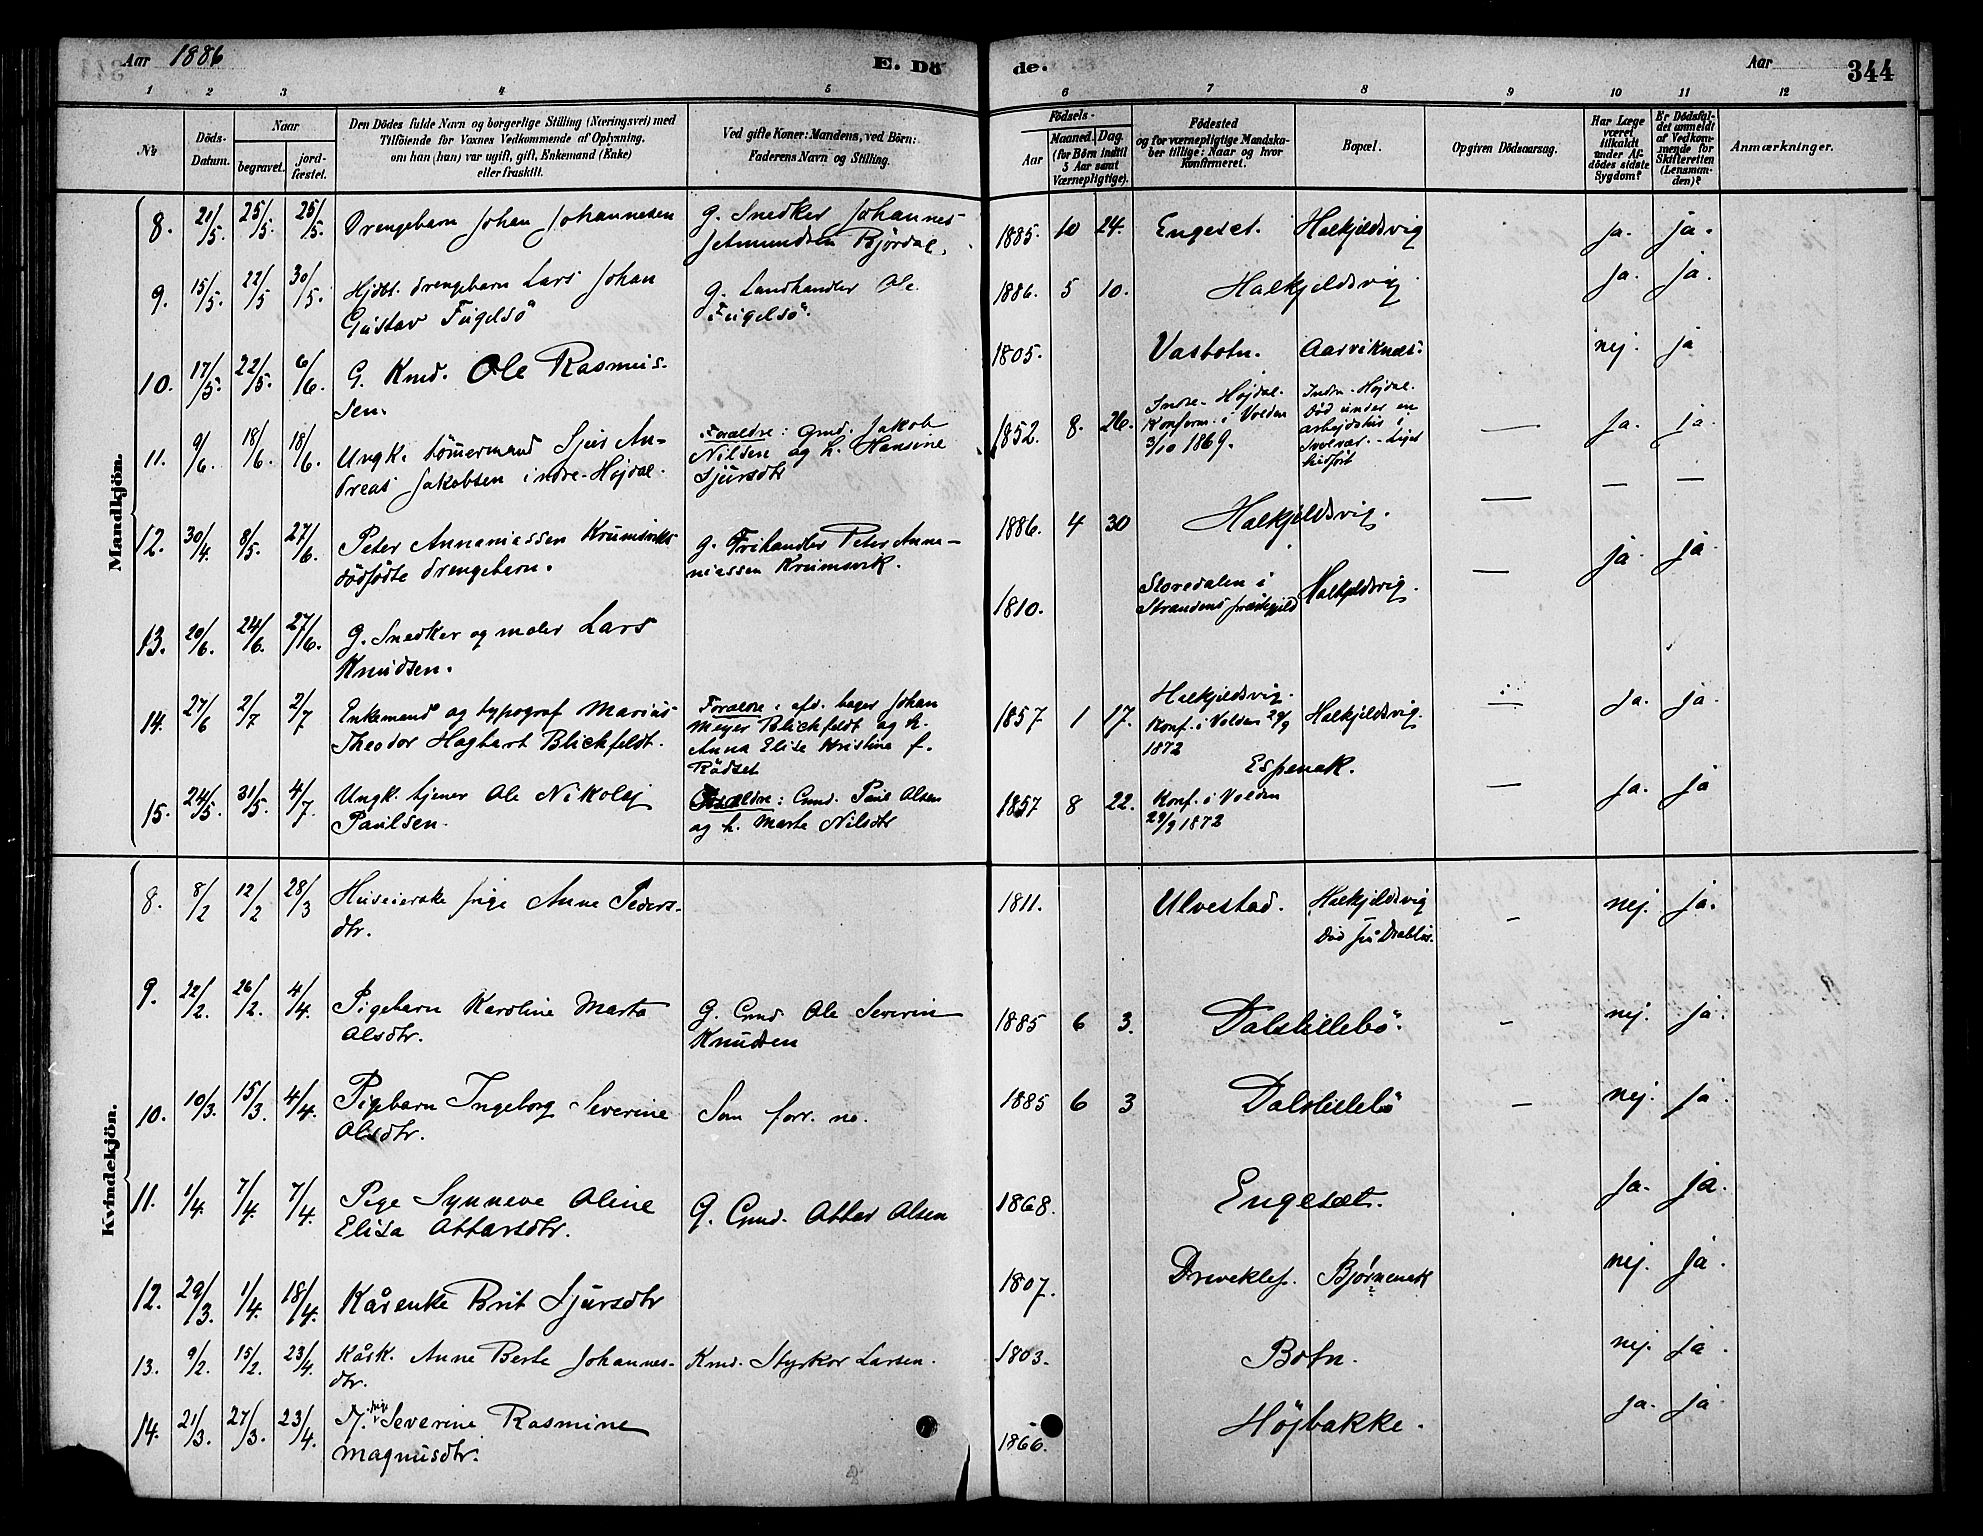 Aar 1886
E. Dö
de.
Aar
344
1 2 3 4 5 6 7 8 9 10 11 12
№
Döds-
Datum.
Naar
begravet.
jord-
fæstet.
Den Dödes fulde Navn og borgerlige Stilling (Næringsvei) med
Tilföiende for Voxnes Vedkommende af Oplysning,
om han (hun) var ugift, gift, Enkemand (Enke)
eller fraskilt.
Ved gifte Koner: Mandens, ved Börn:
Faderens Navn og Stilling.
Födsels-
Aar
Maaned.
Dag.
(for Börn indtil
5 Aar samt
Værnepligtige).
Födested
og for værnepligtige Mandska-
ber tillige: Naar og hvor
konfirmeret.
Bopæl.
Opgiven Dödsaarsag.
Har Læge
været
tilkaldt
under Af-
dödes sidste
Sygdom?
Er Dödsfal-
det anmeldt
af Vedkom-
mende for
Skifteretten
(Lensman-
den)?
Anmærkninger.
Mandkjön.
8. 21/5. 25/5. 25/5. Drengebarn Johan Johannesen
g. Snedker Johannes
Jetmundsen Bjørdal.
1885. 10 24. Engeset. Halkjeldsvig ja. ja.
9. 15/5. 22/5 30/5. Hjdbt. drengebarn Lars Johan
Gustav Fugelsö
g. Landhandler Ole
Fugelsö.
1886. 5 10. Halkjeldsvig ja. ja.
10. 17/5. 22/5. 6/6. G. Kmd. Ole Rasmus-
sen.
1805. Vasbotn. Aarviknæs. nej. ja
11. 9/6. 18/6. 18/6. Ungk. tömermand Sjur An-
dreas Jakobsen indre-Højdal.
Forældre: Gmd. Jakob
Nilsen og h. Hansine
Sjursdtr
1852. 8. 26. Indre-Højdal.
Konform. i Volden
3/10 1869.
Indre-Højdal.
Død under en
arbejdstur i
Svolvær. Liget
hidført
— ja. ja.
12. 30/4. 8/5. 27/6. Peter Annaniassen Krumsviks
dödfödte drengebarn.
g. Frihandler Peter Anna-
niassen Krumsvik.
1886. 4 30 Halkjeldsvig. — — —
13. 20/6. 24/6. 27/6. G. Snedker og maler Lars
Knudsen.
1810. Storedalen i
Strandens præstegjeld
Halkjeldsvig. — ja ja
14. 27/6 2/7 2/7 Enkemand og typograf Marius
Theodor Hagbart Blickfeldt.
Forældre: afd. bager Johan
Meyer Blickfeldt og h.
Anna Elise Kristine f.
Rödset
1857 1 17. Halkjeldsvig.
Konf. i Volden 29/9
1872
Halkjeldsvig. — ja. ja.
15. 24/5. 31/5. 4/7. Ungk. tjener Ole Nikolaj
Paulsen.
Forældre: Gmd. Paul Olsen
og h. Marte Nilsdtr
1857 8 22. Espenak.
Konf. i Volden
29/9 1872
— ja. ja
Kvindekjön.
8. 8/2 12/2 28/3 Huseierske pige Anne Peders-
dtr.
1811. Ulvestad. Halkjeldsvig
Død på Drablös.
— nej. ja.
9. 22/2. 26/2. 4/4. Pigebarn Karoline Marta
Olsdtr.
G. Gmd. Ole Severin
Knudsen
1885 6 3. Dalslillebö. — nej. ja.
10. 10/3. 15/3. 4/4. Pigebarn Ingeborg Severine
Olsdtr.
Som forr. no.
1885 6 3 Dalslillebö — nej. ja
11. 1/4. 7/4. 7/4. Pige Synneve Oline
Elisa Ottarsdtr.
G. Gmd. Ottar Olsen
1868. Engesæt. ja. ja.
12. 29/3. 1/4. 18/4. Kårenke Brit Sjursdtr
1807. Driveklep. Bjørneset nej. ja.
13. 9/2. 15/2. 23/4. Kårk. Anne Berte Johannes-
dtr.
Kmd. Styrkor Larsen.
1803. Botn. nej. ja.
14. 21/3. 27/3. 23/4. N. pige Severine Rasmine
Magnusdtr.
1866. Højbakke. ja. ja